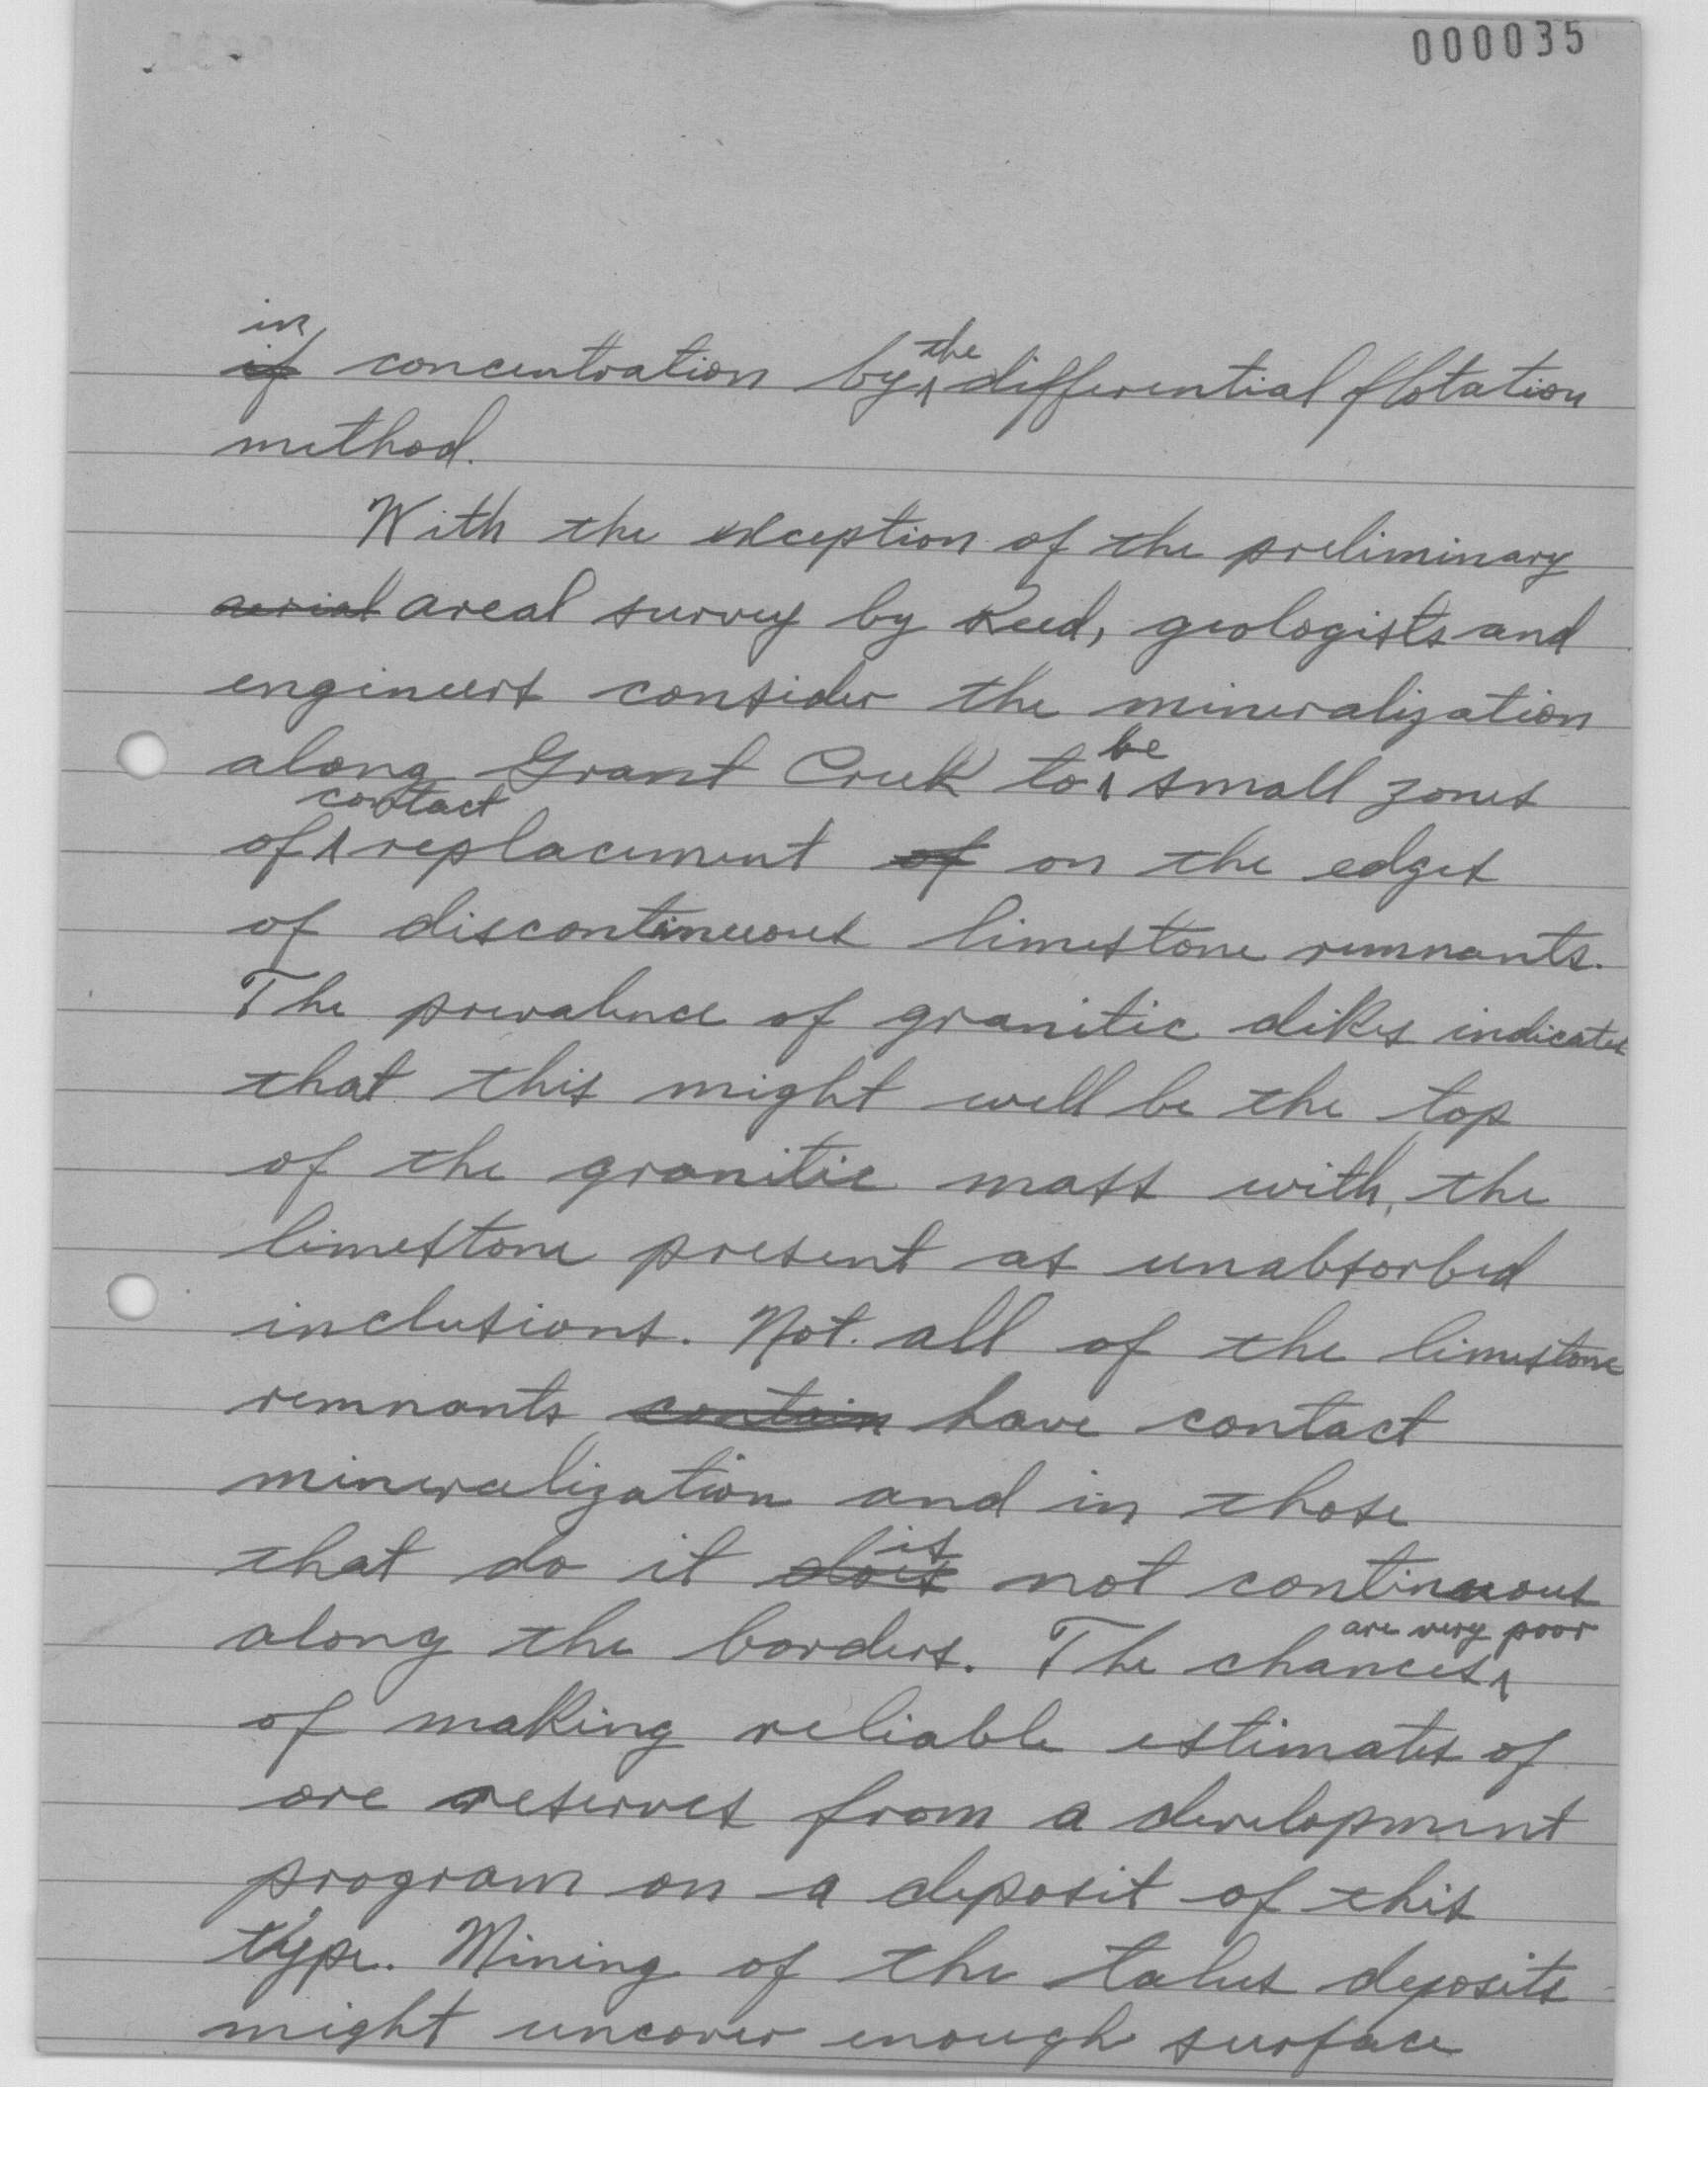 000035
in
if concentration by ^ the differential flotation
method.
With the exception of the preliminary
aerial areal survey by Reed, geologists and
engineers consider the mineralization
along Grant Creek to ^ be small zones
of ^ contact replacement of on the edges
of discontinuous limestone remnants.
The prevalence of granitic dikes indicates
that this might well be the top
of the granitic mass with, the
limestone present as unabsorbed
inclusions. Not all of the limestone
remnants contain have contact
mineralization and in those
that do it does is not continuous
along the borders. The chances ^ are very poor
of making reliable estimates of
ore reserves from a development
program on a deposit of this
type. Mining of the talus deposits
might uncover enough surface